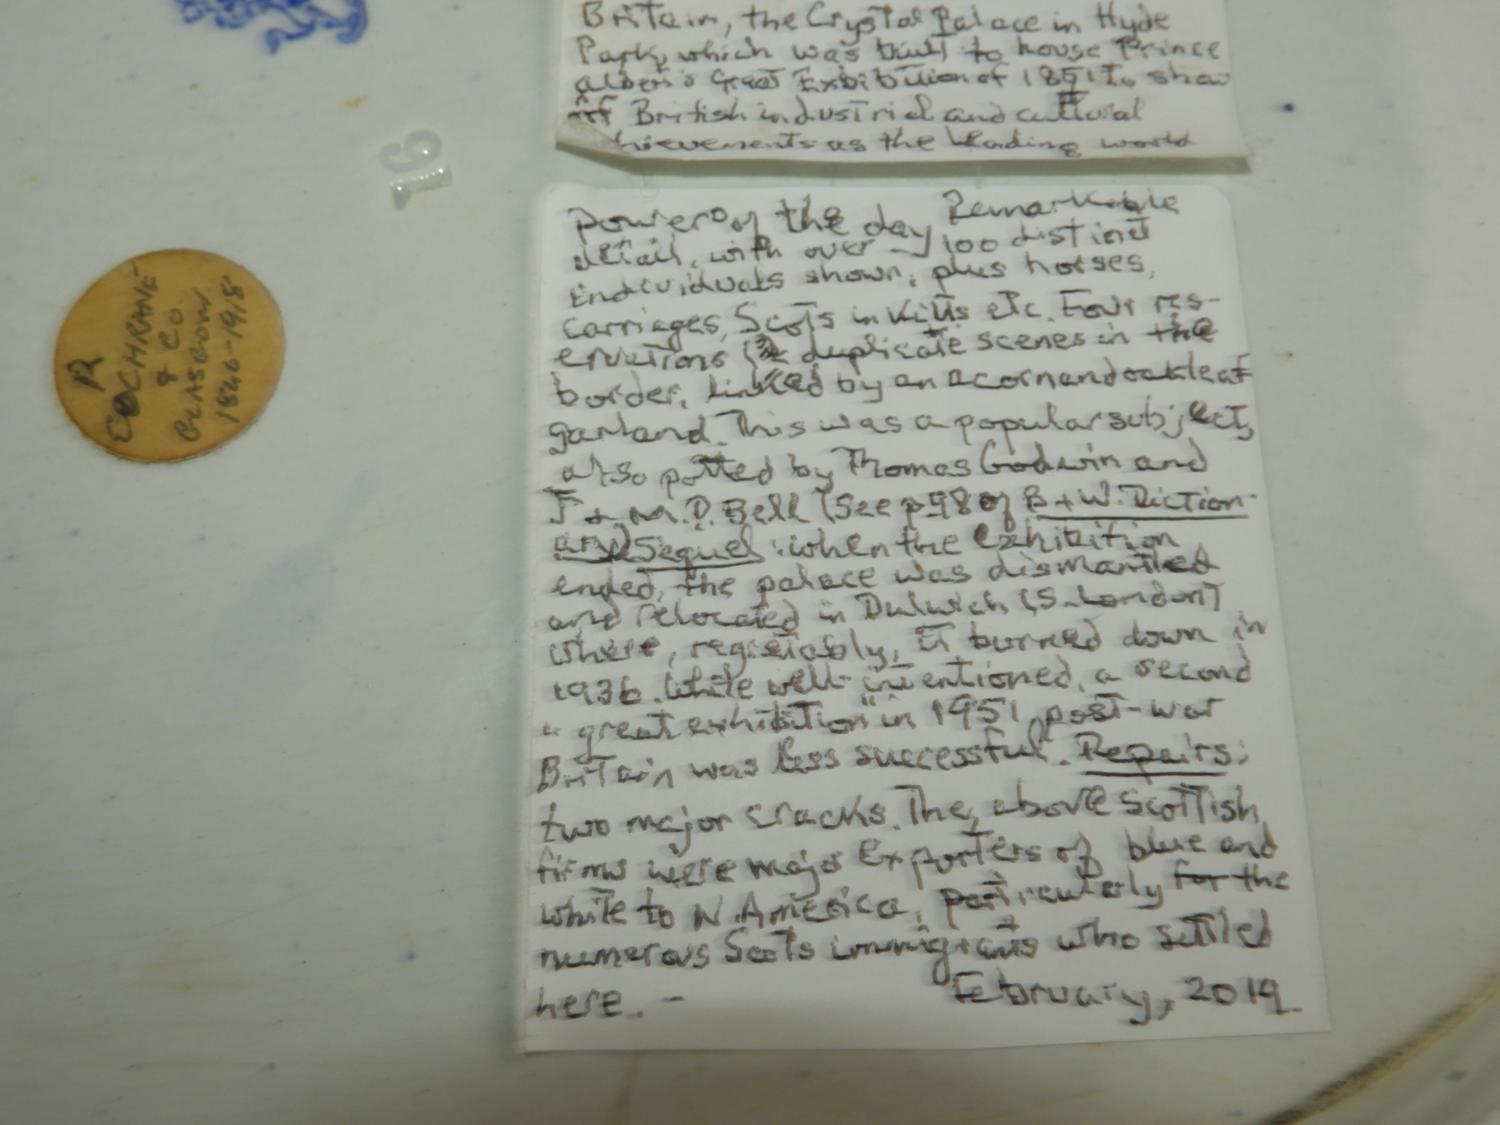 Britain, the Crystal Palace in Hyde
Park, which was built to house Prince
Albert's Great Exhibition of 1851 to show
off British industrial and cultural
hievements as the leading world
16
power of the day. Remarkable
detail, with over 100 distinct
individuals shown, plus horses,
carriages, Scots in kilts etc. Four res-
ervations duplicate scenes in the
border, linked by an acorn and oakleaf
garland. This was a popular subject,
also potted by Thomas Godwin and
J + M.P. Bell (See p98 of B + W. Diction-
ary Sequel: when the exhibition
ended, the palace was dismantled
and relocated in Dulwich (S. London)
where, it burned down in
1936. While well-intentioned, a second
"great exhibition" in 1951, post-war
Britain was less successful. Repairs:
two major cracks. The above Scottish
firms were major exporters of blue and
white to N. America, particularly for the
numerous Scots immigrants who settled
here. -
February, 2019
R
COCHRANE
& CO
GLASGOW
1846-1918